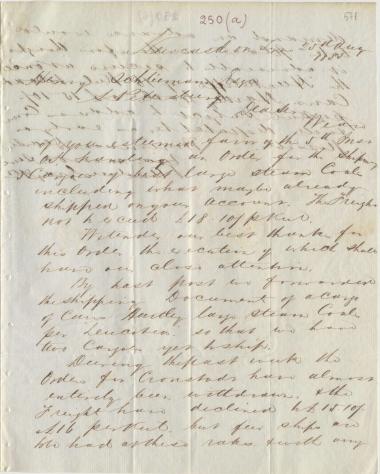 250 (a)
571
Newcastle on Tyne 23d Aug
Henry Schliemann Esq
St Petersburg
Dear Sir
We are in
of your esteemed favor of the 5th Inst
handing an Order for the shipment
Cargoes of best large Steam Coals
including what may be already
shipped on your account. The Freight
not to exceed £18.10/ p Keel.
We tender our best thanks for
this Order the execution of which shall
have our close attention.
By last post we forwarded
the shipping Document of a cargo
of Hartley large Steam Coals
per so that we have
two Cargoes yet to ship.
During the past week the
Orders for Cronstadt have almost
entirely been withdrawn & the
Freight have declined to £15.10/
£16 per Keel, but few ships are
to be had at these rates & with any